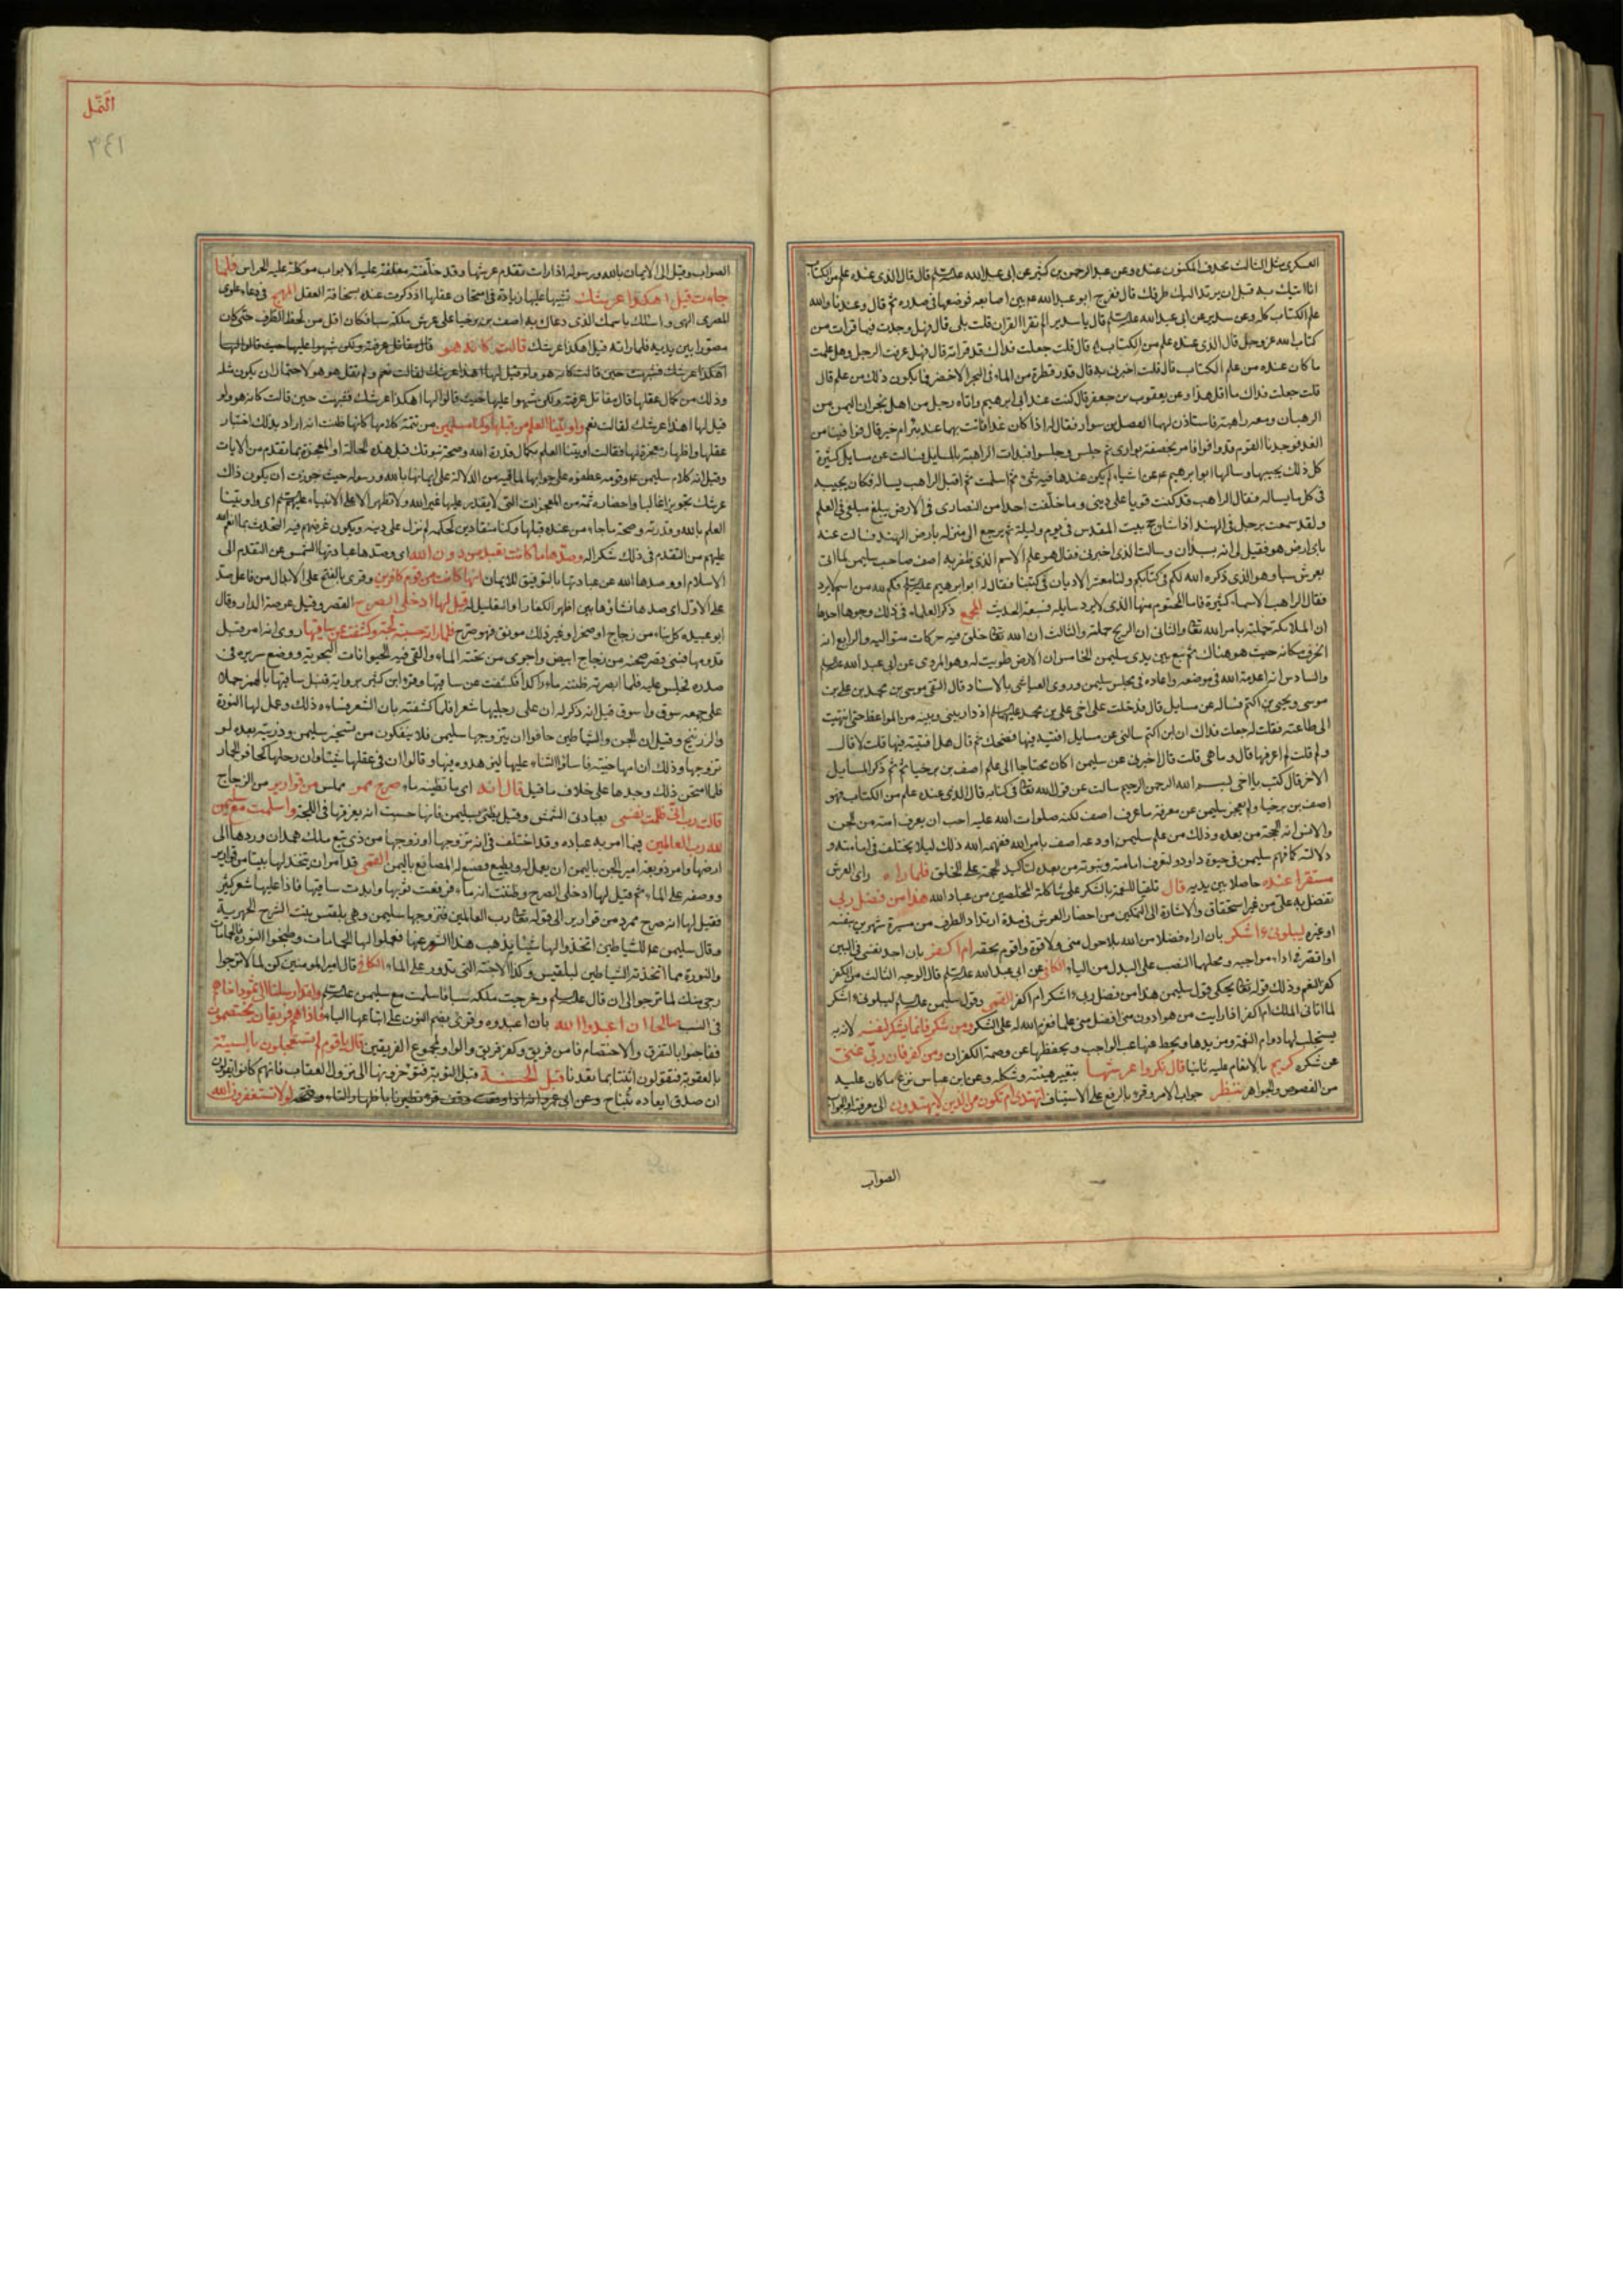 العسكري مثل الثالث بحذف المكنون عنده وعن عبد الرحمن بن كثير عن ابى عبد الله قال قال الذى عنده علم من الكتاب
انا اتيك به قبل ان يرتد اليك طرفك قال ففرج ابو عبد الله بين اصابعه فوضعها فى صدره ثم قال وعندنا والله
علم الكتاب كله وعن سدير عن ابى عبد الله قال يا سدير الم تقرا القران قلت بلى قال فهل وجدت فيما قرات من
كتاب الله عز وجل قال الذى عنده علم من الكتاب قال قلت جعلت فداك قد قراته قال فهل عرفت الرجل وهل علمت
ما كان عنده من علم الكتاب قال قلت اخبرنى به قال قدر قطرة من الماء فى البحر الاخضر فما يكون ذلك من علم قال
قلت جعلت فداك ما اقل هذا وعن يعقوب بن جعفر قال كنت عند ابى ابرهيم واتاه رجل من اهل نجران اليمن من
الرهبان ومعه راهبة فاستاذن لهما الفضل بن سوار فقال له اذا كان غدا فائت بهما عند بئر ام خير قال فوافينا من
الغد فوجدنا القوم قد وافوا فامر بخصفة بوارى ثم جلس وجلسوا فبدات الراهبة بالمسايل فسالت عن مسايل كثيرة
كل ذلك يجيبها وسالها ابو ابرهيم عن اشياء لم يكن عندها فيه شئ ثم اسلمت ثم اقبل الراهب يساله فكان يجيبه
فى كل ما يساله فقال الراهب قد كنت قويا على دينى وما خلفت احدا من النصارى فى الارض يبلغ مبلغى فى العلم
ولقد سمعت برجل فى الهند اذا شاء حج بيت المقدس فى يوم وليلة ثم يرجع الى منزله بارض الهند فسالت عنه
باى ارض هو فقيل لى انه بسبذان وسالت الذى اخبرنى فقال هو علم الاسم الذى ظفر به اصف صاحب سليمن لما اتى
بعرش سبا وهو الذى ذكره الله لكم فى كتابكم ولنا معشر الاديان فى كتبنا فقال له ابو ابرهيم فكم لله من اسم لا يرد
فقال الراهب الاسماء كثيرة فاما المحتوم منها الذى لا يرد سايله فسبعة الحديث المجمع ذكر العلماء فى ذلك وجوها احدها
ان الملائكة حملته بامر الله والثانى ان الريح حملته والثالث ان الله خلق فيه حركات متوالية والرابع انه
انخرق مكانه حيث هو هناك ثم نبع بين يدى سليمن الخامس ان الارض طويت له وهو المروى عن ابى عبد الله
والسادس انه اعدمه الله فى موضعه واعاده فى مجلس سليمن وروى العياشى بالاسناد قال التقى موسى بن محمد بن على بن
موسى ويحيى بن اكثم فساله عن مسايل قال فدخلت على اخى على بن محمد اذ دار بينى وبينه من المواعظ حتى انتهيت
الى طاعته فقلت له جعلت فداك ان ابن اكثم سالنى عن مسايل افتيه فيها فضحك ثم قال هل افتيته فيها قلت لا قال
ولم قلت لم اعرفها قال وما هى قلت قال اخبرنى عن سليمن اكان محتاجا الى علم اصف بن برخيا ثم ذكر المسايل
الاخر قال كتب يا اخى بسم الله الرحمن الرحيم سالت عن قول الله فى كتابه قال الذى عنده علم من الكتاب فهو
اصف بن برخيا ولم يعجز سليمن عن معرفة ما عرف اصف لكنه صلوات الله عليه احب ان يعرف امته من الجن
والانس انه الحجة من بعده وذلك من علم سليمن اودعه اصف بامر الله ففهمه الله ذلك ليلا يختلف فى امامته و
دلالته كما فهم سليمن فى حيوة داود لتعرف امامته ونبوته من بعده لتاكيد الحجة على الخلق فلما راه راى العرش
مستقرا عنده حاصلا بين يديه قال تلقيا للنعمة بالشكر على شاكلة المخلصين من عباد الله هذا من فضل ربى
تفضل به على من غير استحقاق والاشارة الى التمكين من احضار العرش فى مدة ارتداد الطرف من مسيرة شهرين بنفسه
او غيره ليبلونى ءاشكر بان اراه فضلا من الله بلا حول منى ولا قوة واقوم بحقه ام اكفر بان اجد نفسى فى البين
او اقصر فى اداء مواجبه ومحلهما النصب على البدل من الياء الكافى عن ابى عبد الله قال الوجه الثالث من الكفر
كفر النعم وذلك قوله يحكى قول سليمن هذا من فضل ربى ليبلونى ءاشكر ام اكفر القمى وقول سليمن ليبلونى ءاشكر
لما اتانى الملك ام اكفر اذا رايت من هو ادون منى افضل منى علما فعزم الله له على الشكر ومن شكر فانما يشكر لنفسه لانه به
يستجلب لها دوام النعمة ومزيدها ويحط عنها عبء الواجب ويحفظها عن وصمة الكفران ومن كفر فان ربى غنى
عن شكره كريم بالانعام عليه ثانيا قال نكروا لها عرشها بتغيير هيئته وشكله وعن ابن عباس نزع ما كان عليه
من الفصوص والجواهر ننظر جواب الامر وقرء بالرفع على الاستيناف اتهتدى ام تكون من الذين لا يهتدون الى معرفته او الجواب
الصواب
النمل
٣٤١
الصواب وقيل الى الايمان بالله ورسوله اذا رات تقدم عرشها وقد خلفته مغلقة عليه الابواب موكلة عليه الحراس فلما
جاءت قيل اهكذا عرشك تشبيها عليها زيادة فى امتحان عقلها اذ ذكرت عنده بسخافة العقل المهج فى دعاء علوى
المصرى الهى واسئلك باسمك الذى دعاك به اصف بن برخيا على عرش ملكة سبا فكان اقل من لحظ الطرف حتى كان
مصورا بين يديه فلما راته قيل اهكذا عرشك قالت كانه هو قال مقاتل عرفته ولكن شبهوا عليها حيث قالوا لها
اهكذا عرشك فشبهت حين قالت كانه هو ولو قيل لها اهذا عرشك لقالت نعم ولم تقل هو هو لاحتمال ان يكون مثله
وذلك من كمال عقلها قال مقاتل عرفته ولكن شبهوا عليها حيث قالوا لها اهكذا عرشك فشبهت حين قالت كانه هو ولو
قيل لها اهذا عرشك لقالت نعم واوتينا العلم من قبلها وكنا مسلمين من تتمة كلامها كانها ظنت انه اراد بذلك اختبار
عقلها واظهار معجزة لها فقالت اوتينا العلم بكمال قدرة الله وصحة نبوتك قبل هذه الحالة او المعجزة بما تقدم من الايات
وقيل انه كلام سليمن وقومه عطفوه على جوابها لما فيه من الدلالة على ايمانها بالله ورسوله حيث جوزت ان يكون ذلك
عرشك تجويزا غالبا واحضاره ثمة من المعجزات التى لا يقدر عليها غير الله ولا تظهر الا على الانبياء اى واوتينا
العلم بالله وقدرته وصحة ما جاء من عنده قبلها وكنا منقادين لحكمه لم نزل على دينه ويكون غرضهم فيه التحدث بما انعم الله
عليهم من التقدم فى ذلك شكرا له وصدها ما كانت تعبد من دون الله اى وصدها عبادتها الشمس عن التقدم الى
الاسلام او وصدها الله عن عبادتها بالتوفيق للايمان انها كانت من قوم كافرين وقرئ بالفتح على الابدال من فاعل صد
على الاول اى صدها نشاؤها بين اظهر الكفار او التعليل له قيل لها ادخلى الصرح القصر وقيل عرصة الدار وقال
ابو عبيده كل بناء من زجاج او صخر او غير ذلك موثق فهو صرح فلما راته حسبته لجة وكشفت عن ساقيها روى انه امر قبل
قدومها فبنى قصر صحنه من زجاج ابيض واجرى من تحته الماء والقى فيه الحيوانات البحرية ووضع سريره فى
صدره فجلس عليه فلما ابصرته ظنته ماء راكدا فكشفت عن ساقيها وقرء ابن كثير برواية قنبل ساقيها بالهمز حملا
على جمعه سوق واسوق قيل انه ذكر له ان على رجليها شعرا فلما كشفته بان الشعر فساءه ذلك وعمل لها النورة
والزرنيخ وقيل ان الجن والشياطين خافوا ان يتزوجها سليمن فلا ينفكون من تسخير سليمن وذريته بعده لو
تزوجها وذلك ان امها جنية فاساؤا الثناء عليها ليزهدوه فيها وقالوا ان فى عقلها شيئا وان رجلها كحافر الحمار
فلما امتحن ذلك وجدها على خلاف ما قيل قال انه اى ما تظنينه ماء صرح ممرد مملس من قوارير من الزجاج
قالت رب انى ظلمت نفسى بعبادتى الشمس وقيل بظنى بسليمن فانها حسبت انه يغرقها فى اللجة واسلمت مع سليمن
لله رب العالمين فيما امر به عباده وقد اختلف فى انه تزوجها او زوجها من ذى تبع ملك همدان وردها الى
ارضها وامر ذوبعة امير الجن باليمن ان يعمل له ويطيع فصنع له المصانع باليمن القمى قد امر ان يتخذ لها بيتا من قوارير
ووصفه على الماء ثم قيل لها ادخلى الصرح وظنت انه ماء فرفعت ثوبها وابدت ساقيها فاذا عليها شعر كثير
فقيل لها انه صرح ممرد من قوارير الى قوله رب العالمين فتزوجها سليمن وهى بلقيس بنت الشرح الحميرية
وقال سليمن للشياطين اتخذوا لها شيئا يذهب هذا الشعر عنها فعملوا لها الحمامات وطبخوا النورة فالحمامات
والنورة مما اتخذته الشياطين لبلقيس وكذا الارحية التى تدور على الماء الكافى قال امير المومنين كن لما لا ترجوا
ارجى منك لما ترجوا الى ان قال وخرجت ملكة سبا فاسلمت مع سليمن ولقد ارسلنا الى ثمود اخاهم
فى النسب صالحا ان اعبدوا الله بان اعبدوه وقرئ بضم النون على اتباعها الباء فاذا هم فريقان يختصمون
ففاجئوا بالتفرق والاختصام فامن فريق وكفر فريق والواو لمجموع الفريقين قال يا قوم لم تستعجلون بالسيئة
بالعقوبة فتقولون ائتنا بما تعدنا قبل الحسنة قبل التوبة فتؤخرونها الى نزول العقاب فانهم كانوا يقولون
ان صدق ايعاده تبنا ح وعن ابى عمرو لولا تستغفرون الله